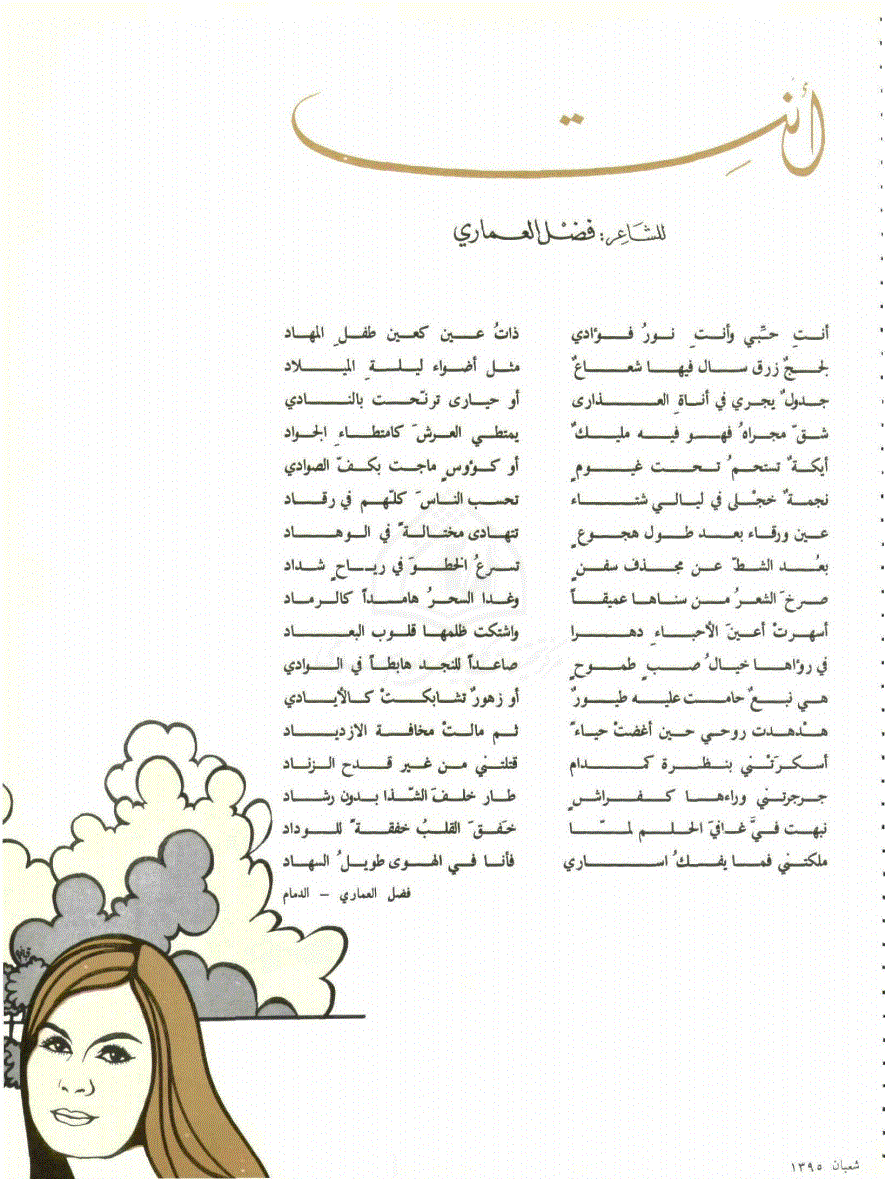 أنتِ
للشاعر: فضل العماري
أنتِ حبِّي وأنتِ نورُ فؤادي ذاتُ عين كعين طفلِ المهاد
لججٌ زرق سال فيها شعاعٌ مثل أضواء ليلةِ الميلاد
جدولٌ يجري في أناةِ العذارى أو حيارى ترنّحت بالنادي
شقّ مجراهُ فهو فيه مليكٌ يمتطي العرشَ كامتطاءِ الجواد
أيكةٌ تستحمُ تحت غيومٍ أو كؤوسٍ ماجت بكفّ الصوادي
نجمةٌ خجْلى في ليالي شتاء تحسب الناسَ كلّهم في رقاد
عين ورقاء بعد طول هجوعٍ تتهادى مختالةً في الوهاد
بعُد الشطّ عن مجذف سفنٍ تسرعُ الخطوَ في رياحٍ شداد
صرخَ الشعرُ من سناها عميقاً وغدا السحرُ هامداً كالرماد
أسهرتْ أعينَ الأحباءِ دهرا واشتكت ظلمها قلوب البعاد
في رؤاها خيالُ صبٍ طموحٍ صاعداً للنجد هابطاً في الوادي
هي نبعٌ حامت عليه طيورٌ أو زهورٌ تشابكتْ كالأيادي
هدهدت روحي حين أغضتْ حياءً ثم مالتْ مخافة الازدياد
أسكرَتْني بنظرة كمدام قتلتني من غير قدح الزناد
جرجرتني وراءها كفراشٍ طار خلفَ الشّذا بدون رشاد
نبهت فيَّ غافيَ الحلم لمّا خفقَ القلبُ خفقةً للوداد
ملكتني فما يفكُ اساري فأنا في الهوى طويلُ السهاد
فضل العماري – الدمام
شعبان ١٣٩٥